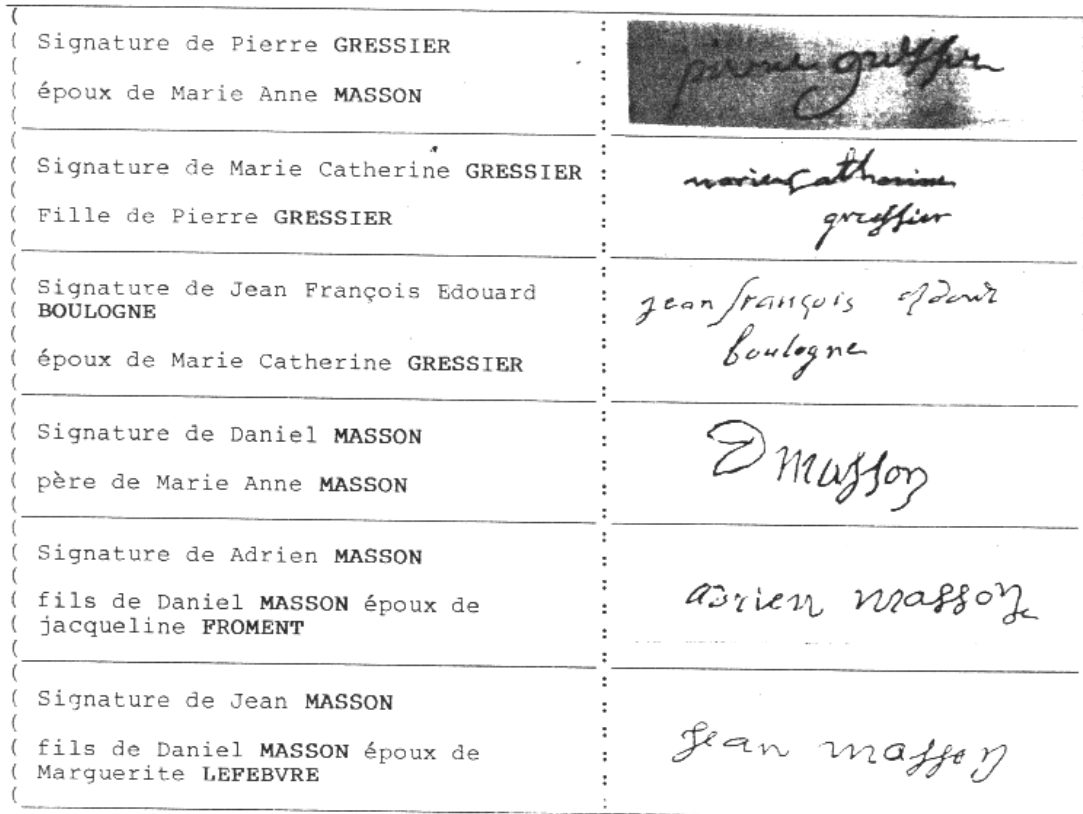 Signature de Pierre GRESSIER
époux de Marie Anne MASSON
pierre gressier
Signature de Marie Catherine GRESSIER
Fille de Pierre GRESSIER
marie Catherine
gressier
Signature de Jean François Edouard
BOULOGNE
époux de Marie Catherine GRESSIER
jean françois edour
boulogne
Signature de Daniel MASSON
père de Marie Anne MASSON
D masson
Signature de Adrien MASSON
fils de Daniel MASSON époux de
jacqueline FROMENT
adrien masson
Signature de Jean MASSON
fils de Daniel MASSON époux de
Marguerite LEFEBVRE
jean masson